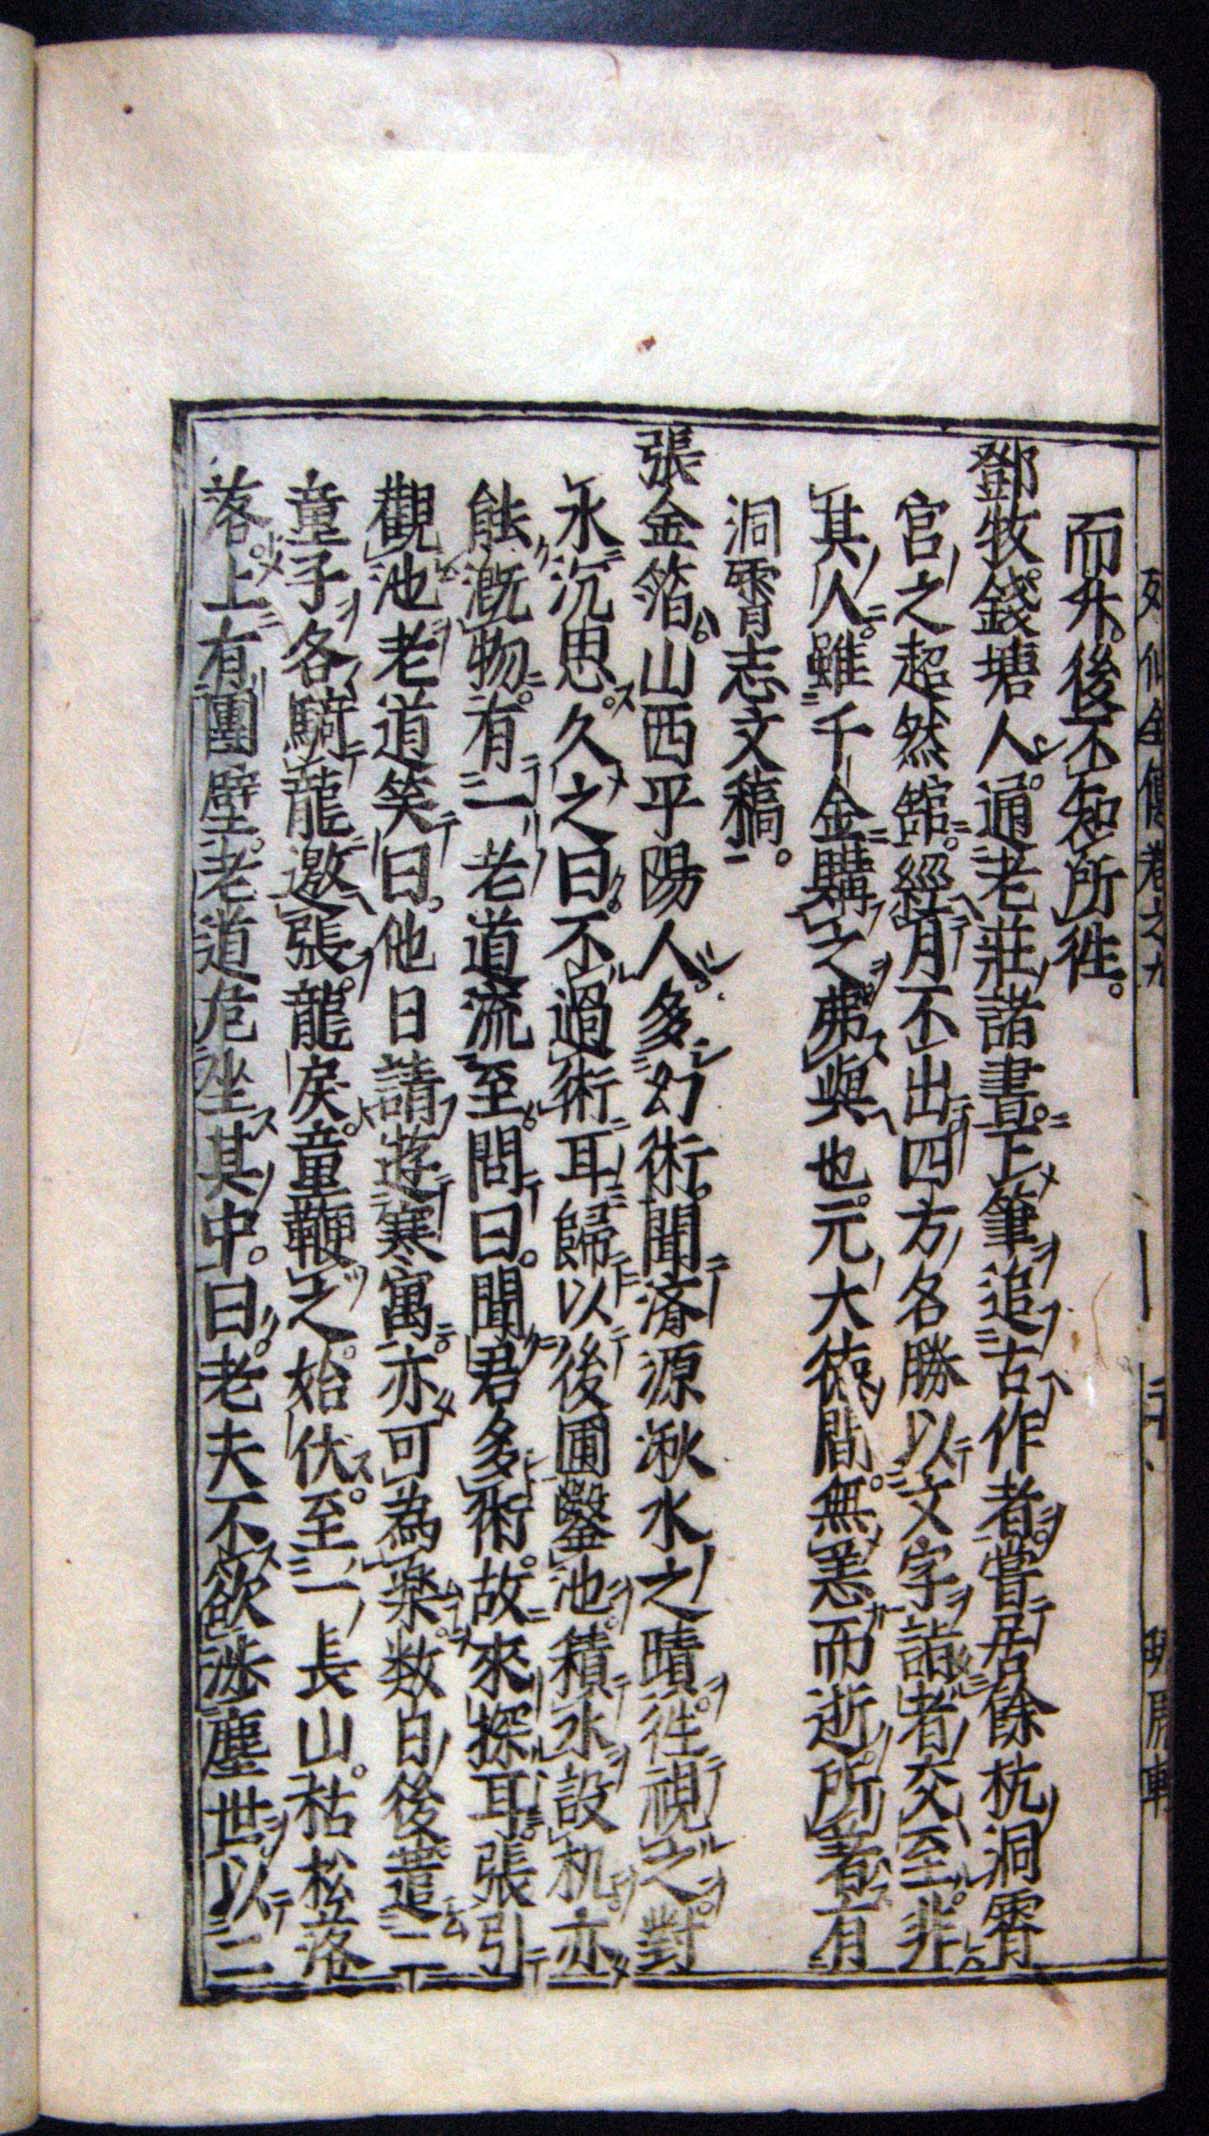 而升。後不知所往。
鄧牧。錢塘人。通老莊諸書。下筆追古作者。嘗居餘杭洞霄
宮之超然館。經月不出。四方名勝以文字請者交至。非
其人。雖千金購之。弗與也。元大德間。無恙而逝。所著有
洞霄志文稿。
張金箔。山西平陽人。多幻術。聞濟源湫水之瞔。往視之。對
水沉思。久之曰。不過術耳。歸以後圃鑿池。積水設机。亦
能溉物。有一老道流至。問曰。聞君多術。故來探耳。張引
觀池。老道笑曰。他日請遊寒寓。亦可為樂。数日後。遣二
童子。各騎龍邀張。龍戾。童鞭之。始伏。至一長山。枯松落
落。上有團壁。老道危坐其中。曰。老夫不欲涉塵世。以二